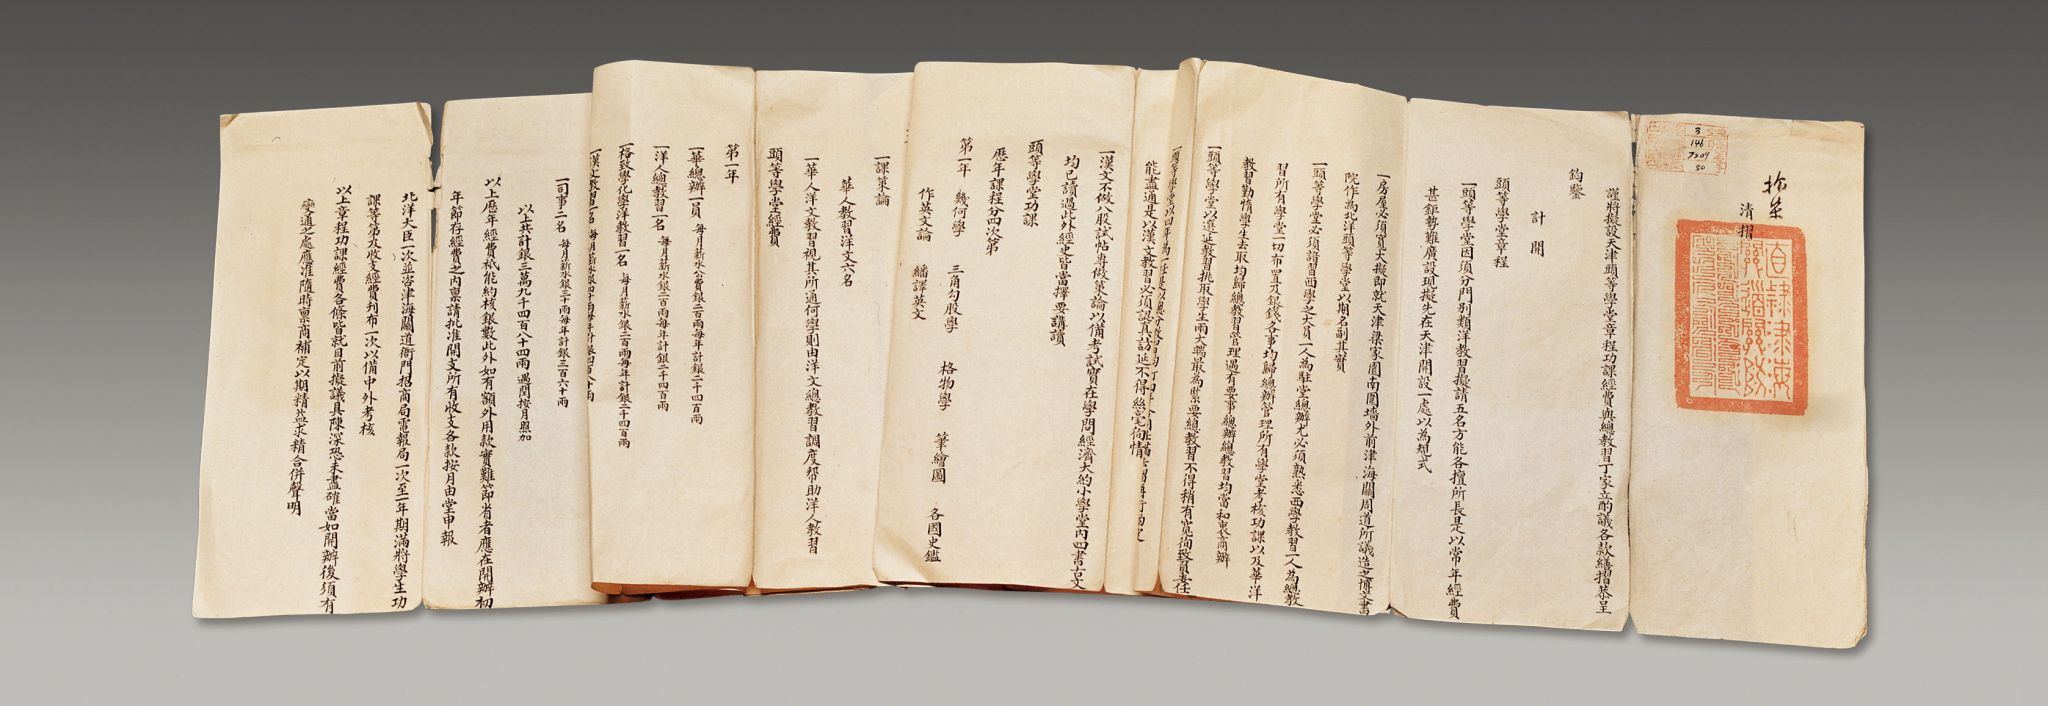 3
146
7209
50
清摺
謹將擬設天津頭等學堂章程功課經費與總教習丁家立酌議各款繕摺恭呈
鈞鑒
計開
頭等學堂章程
一頭等學堂因須分門別類洋教習擬請五名方能各擅所長是以常年經費
甚鉅勢難廣設現擬先在天津開設一處以為規式
一房屋必須寬大擬即就天津梁家園南圍墻外前津海關周道所議造之博文書
院作為北洋頭等學堂以期名副其實
一頭等學堂必須諳習西學之大員一人為駐堂總辦尤必須熟悉西學教習一人為總教
習所有學堂一切布置及銀錢各事均歸總辦管理所有學堂考核功課以及華洋
教習勤惰學生去取均歸總教習管理遇有要事總辦總教習均當和衷商辦
一頭等學堂以選延教習挑取學生兩大端最為緊要總教習不得稍有寬徇致負委任
能盡通是以漢文教習必須認真訪延不得絲毫徇情
一漢文不做八股試帖專做策論以備考試實在學問經濟大約小學堂內四書古文
均已讀過此外經史皆當擇要講讀
頭等學堂功課
歷年課程分四次第
第一年 幾何學 三角勾股學 格物學 筆繪圖 各國史鑑
作英文論 繙譯英文
一課策論
華人教習洋文六名
一華人洋文教習視其所通何學則由洋文總教習調度帮助洋人教習
頭等學堂經費
第一年
一華總辦一員 每月薪水公費銀二百兩每年計銀二千四百兩
一洋人總教習一名 每月薪水銀二百兩每年計二千四百兩
一格致學化學洋教習一名 每月薪水銀二百兩每年計銀二千四百兩
一漢文教習一名 每月薪水銀四十兩每年計銀四百八十兩
一司事二名 每月薪水銀三十兩每年計銀三百六十兩
以上共計銀三萬九千四百八十四兩 遇閏按月照加
以上歷年經費祇能約核銀數此外如有額外用款實難節省者應在開辦初
年節存經費之內稟請批准開支所有收支各款按月由堂申報
北洋大臣一次並咨津海關道衙門招商局電報局一次至一年期滿將學生功
課等第及收支經費刊布一次以備中外考核
以上章程功課經費各條皆就目前擬議具陳深恐未盡確當如開辦後須有
變通之處應准隨時稟商補定以期精益求精合併聲明